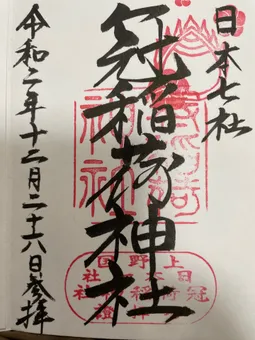 日本七社
冠稲荷神社
令和二年十二月二十六日参拝
上野国
日本七社
冠稲荷神社